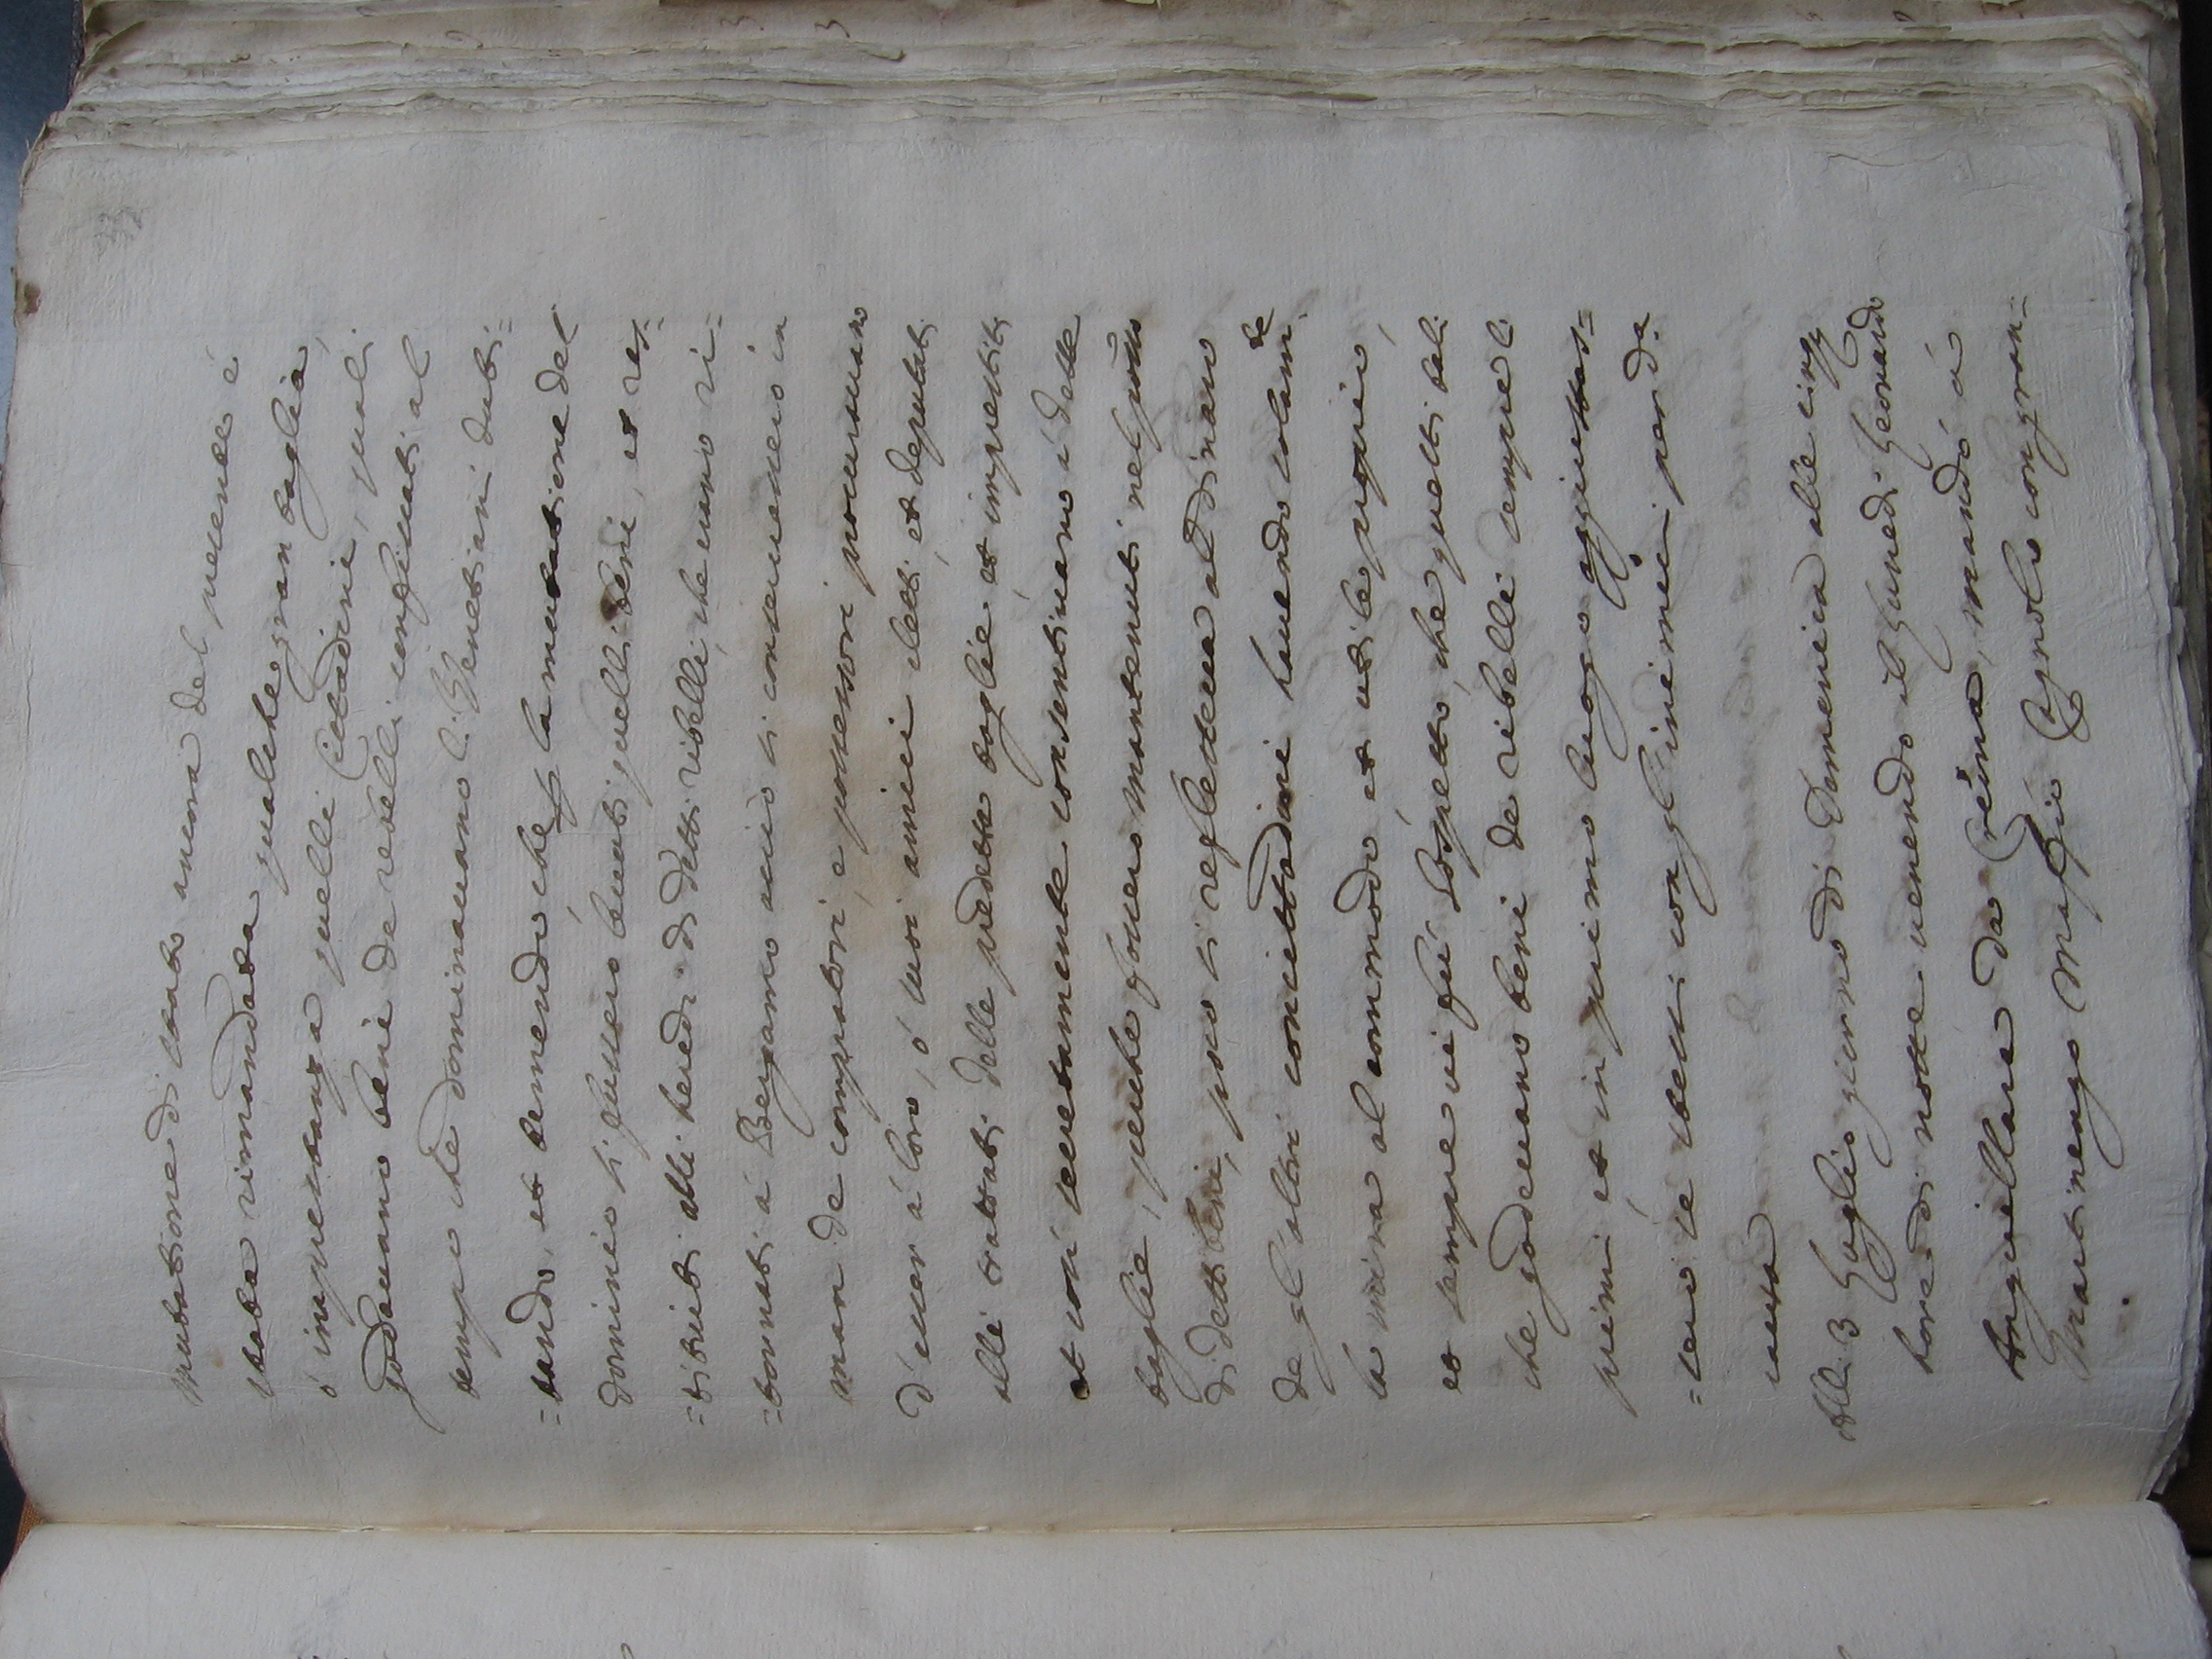 mutatione di stato ancora del precender è
stata rimandata qualche gran taglia,
ó inprestanza quelli Cittadini, quali
godevano beni de rebelli confiscati al
tempo che dominavano li Venetiani dubi=
=tando, et temendo che p la mutatione del
dominio li fussero levati quelli beni, et res=
=tituiti alli heredi di detti ribelli, che erano ri=
=tornati á Bergamo acciò si conservassero in
man de compratori, e possessori procuravano
d'esser á loro, ó suoi amici eletti, et deputati
alli trattati delle predette taglie et imprestiti
et così secretamente consentivano á dette
taglie, perche fossero mantenuti nel posses
di detti beni, poco si reflesseva al dinaro
de gl'altri concittadini havendo solam.te
la mira al commodo et utile proprio,
et sempre vi fú sospetto, che questi tali
che godevano beni de ribelli sempre li
primi et in primo luogo aggiustas=
=sero se stessi con gl'inimici per d.a
causa
Alli 3 Luglio giorno di Domenica alle cinq
hore di notte venendo il Lunedì Leonardo
Anguillara da Crema, mandò á
Martinengo Maffio Cagnolo con gran=